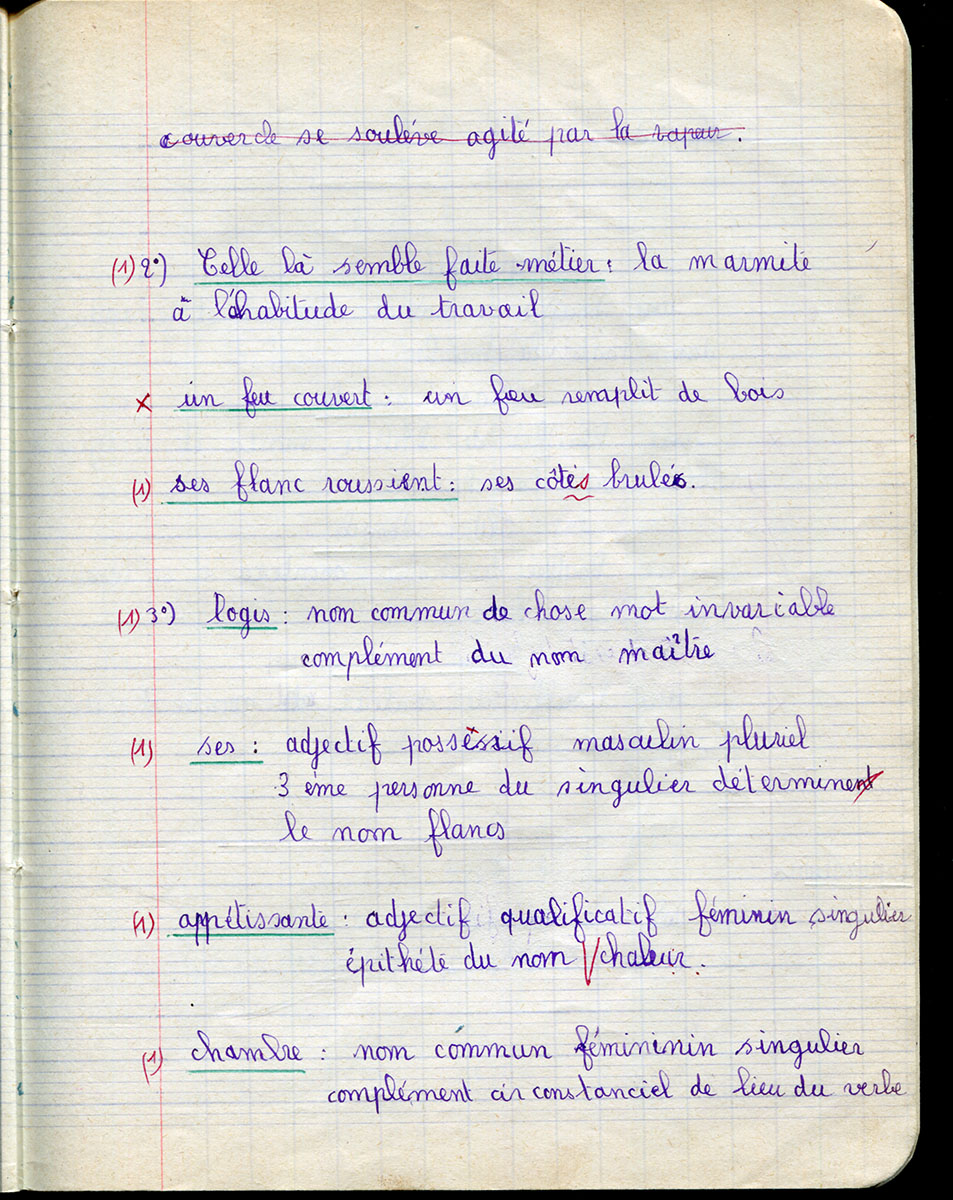 couvercle se soulève agité par la vapeur.
(1) 2°) Celle là semble faite métier : la marmite
à l'habitude du travail
x un feu couvert : un feu remplit de bois
(1) ses flanc roussient : ses côtés brulés.
(1) 3°) logis : nom commun de chose mot invariable
complément du nom maître
(1) ses : adjectif possessif masculin pluriel
3 ème personne du singulier déterminent
le nom flancs
(1) appétissante : adjectif qualificatif féminin singulier
épithéte du nom chaleur.
(1) chambre : nom commun fémininin singulier
complément circonstanciel de lieu du verbe